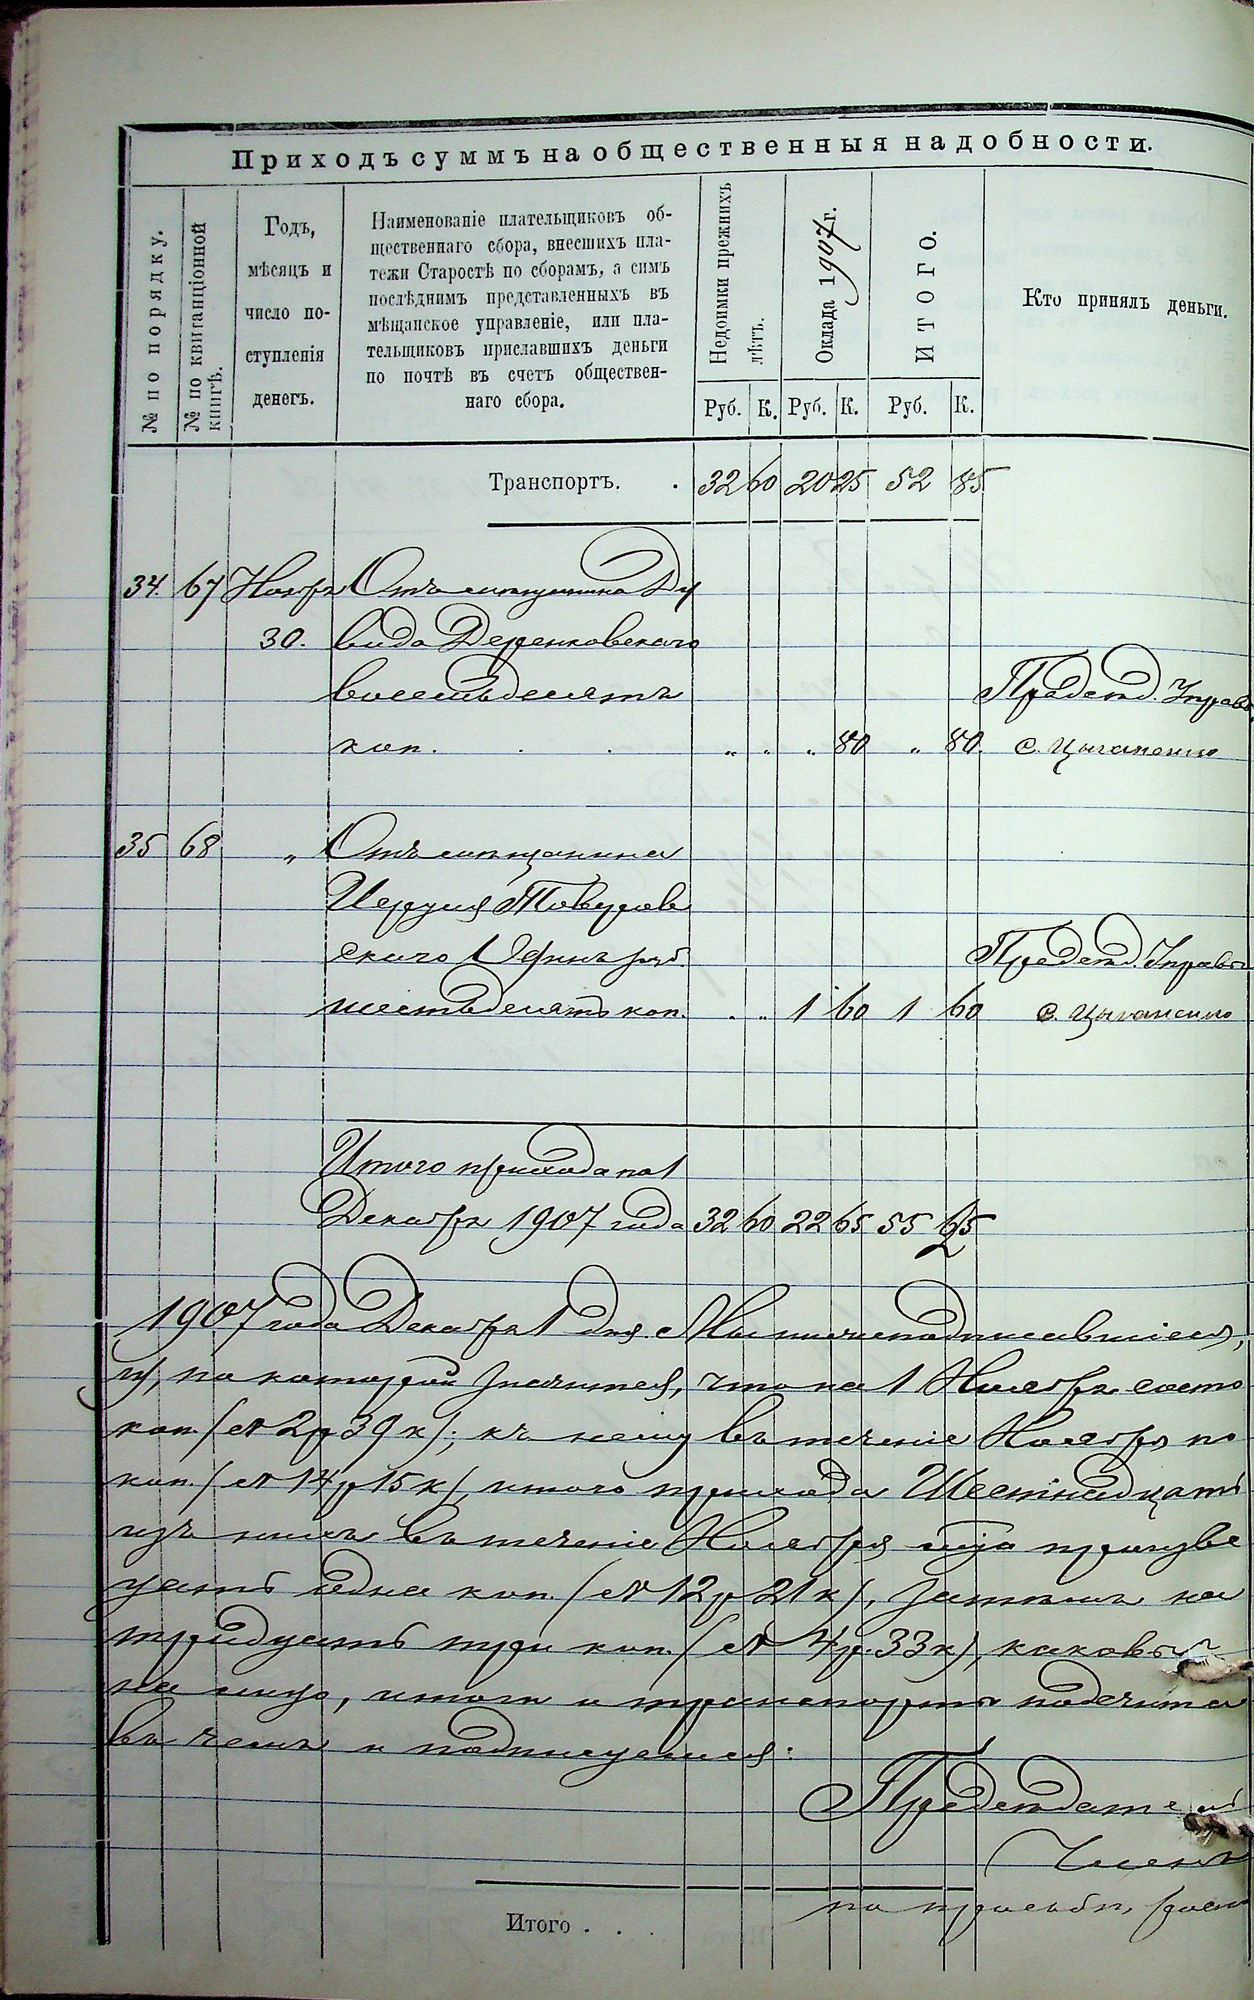 Приходъ суммъ на общественныя надобности.
№ по порядку.
№ по квитанціонной книгѣ.
Годъ,
мѣсяцъ и
число по-
ступленія
денегъ.
Наименованіе плательщиковъ об-
щественнаго сбора, внесшихъ пла-
тежи Старостѣ по сборамъ, а симъ
послѣднимъ представленныхъ въ
мѣщанское управленіе, или пла-
тельщиковъ приславшихъ деньги
по почтѣ въ счетъ обществен-
наго сбора.
Недоимки прежнихъ лѣтъ.
Оклада 1907 г.
ИТОГО.
Кто принялъ деньги.
Руб. К. Руб. К. Руб. К.
Транспортъ. . 32 60 20 25 52 85
34 67 Ноября Отъ мѣщанина Да
30. вида Деренковскаго
восемьдесятъ Предсѣд. Управ.
коп. . . „ „ „ 80 „ 80 С. Цыганенко
35 68 „ Отъ мѣщанина
скаго Одинъ руб. Предсѣд. Управ.
шестьдесятъ коп. „ „ 1 60 1 60 С. Цыганенко
Итого прихода по 1
Декабря 1907 года 32 60 22 65 55 25
1907 года Декабря 1 дня. Мы нижеподписавшіеся,
гу, по которой значится, что на 1 Ноября состо
коп. (2р 39к); къ нему въ теченіе Ноября по
коп. (14р 15к), итого прихода Шестнадцать
изъ нихъ въ теченіе Ноября м-ца произве
цать одна коп. (12р 21к), затѣмъ на
тридцать три коп. (4р. 33к), каковы
на лицо, итоги и транспорты подсчита
въ чемъ и подписуемся:
Предсѣдатель
Члены
по просьбѣ
Итого . . .